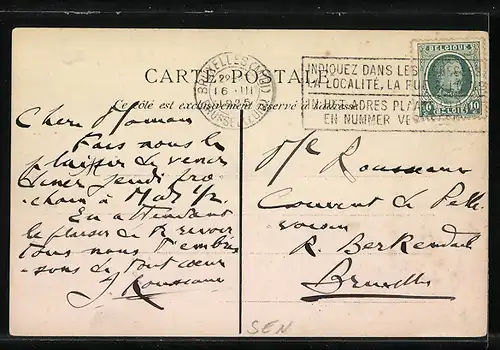 CARTE POSTALE
Ce côté est exclusivement réservé à l'adresse
BRUXELLES
16 III
BRUSSEL
INDIQUEZ DANS LES
LA LOCALITÉ, LA
ADRES PLAATS
EN NUMMER
BELGIQUE
10 BELGIË 10
Chère Maman
Fais nous le
plaisir de venir
diner jeudi pro-
chain à Midi 1/2
En attendant
le plaisir de te revoir
tous nous t'embras-
sons de tout cœur
J. Rousseau
Rousseau
Couvent de
R. Berkendael
Bruxelles
SEN